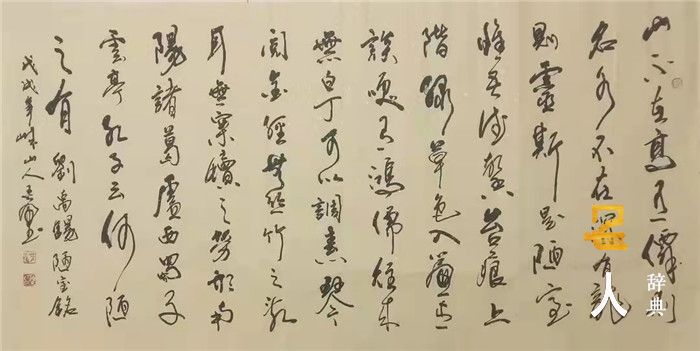 山不在高有僊則
名水不在深有龍
則靈斯是陋室
惟吾德馨苔痕上
階綠草色入簾青
談笑有鴻儒往來
無白丁可以調素琴
閱金經無絲竹之亂
耳無案牘之勞形南
陽諸葛廬西蜀子
雲亭孔子云何陋
之有 劉禹錫陋室銘
戊戌年 山人
名人辞典